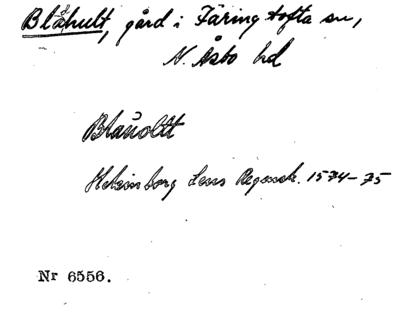 Blåhult, gård i Färingtofta sn,
N. Åsbo hd
Blauoltt
Helsinborg Lens Regensk. 1574-75
Nr 6556.